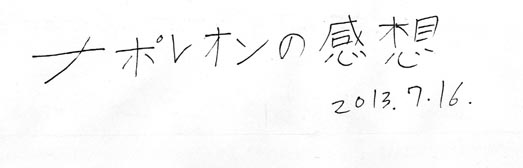 ナポレオンの感想
2013.7.16.